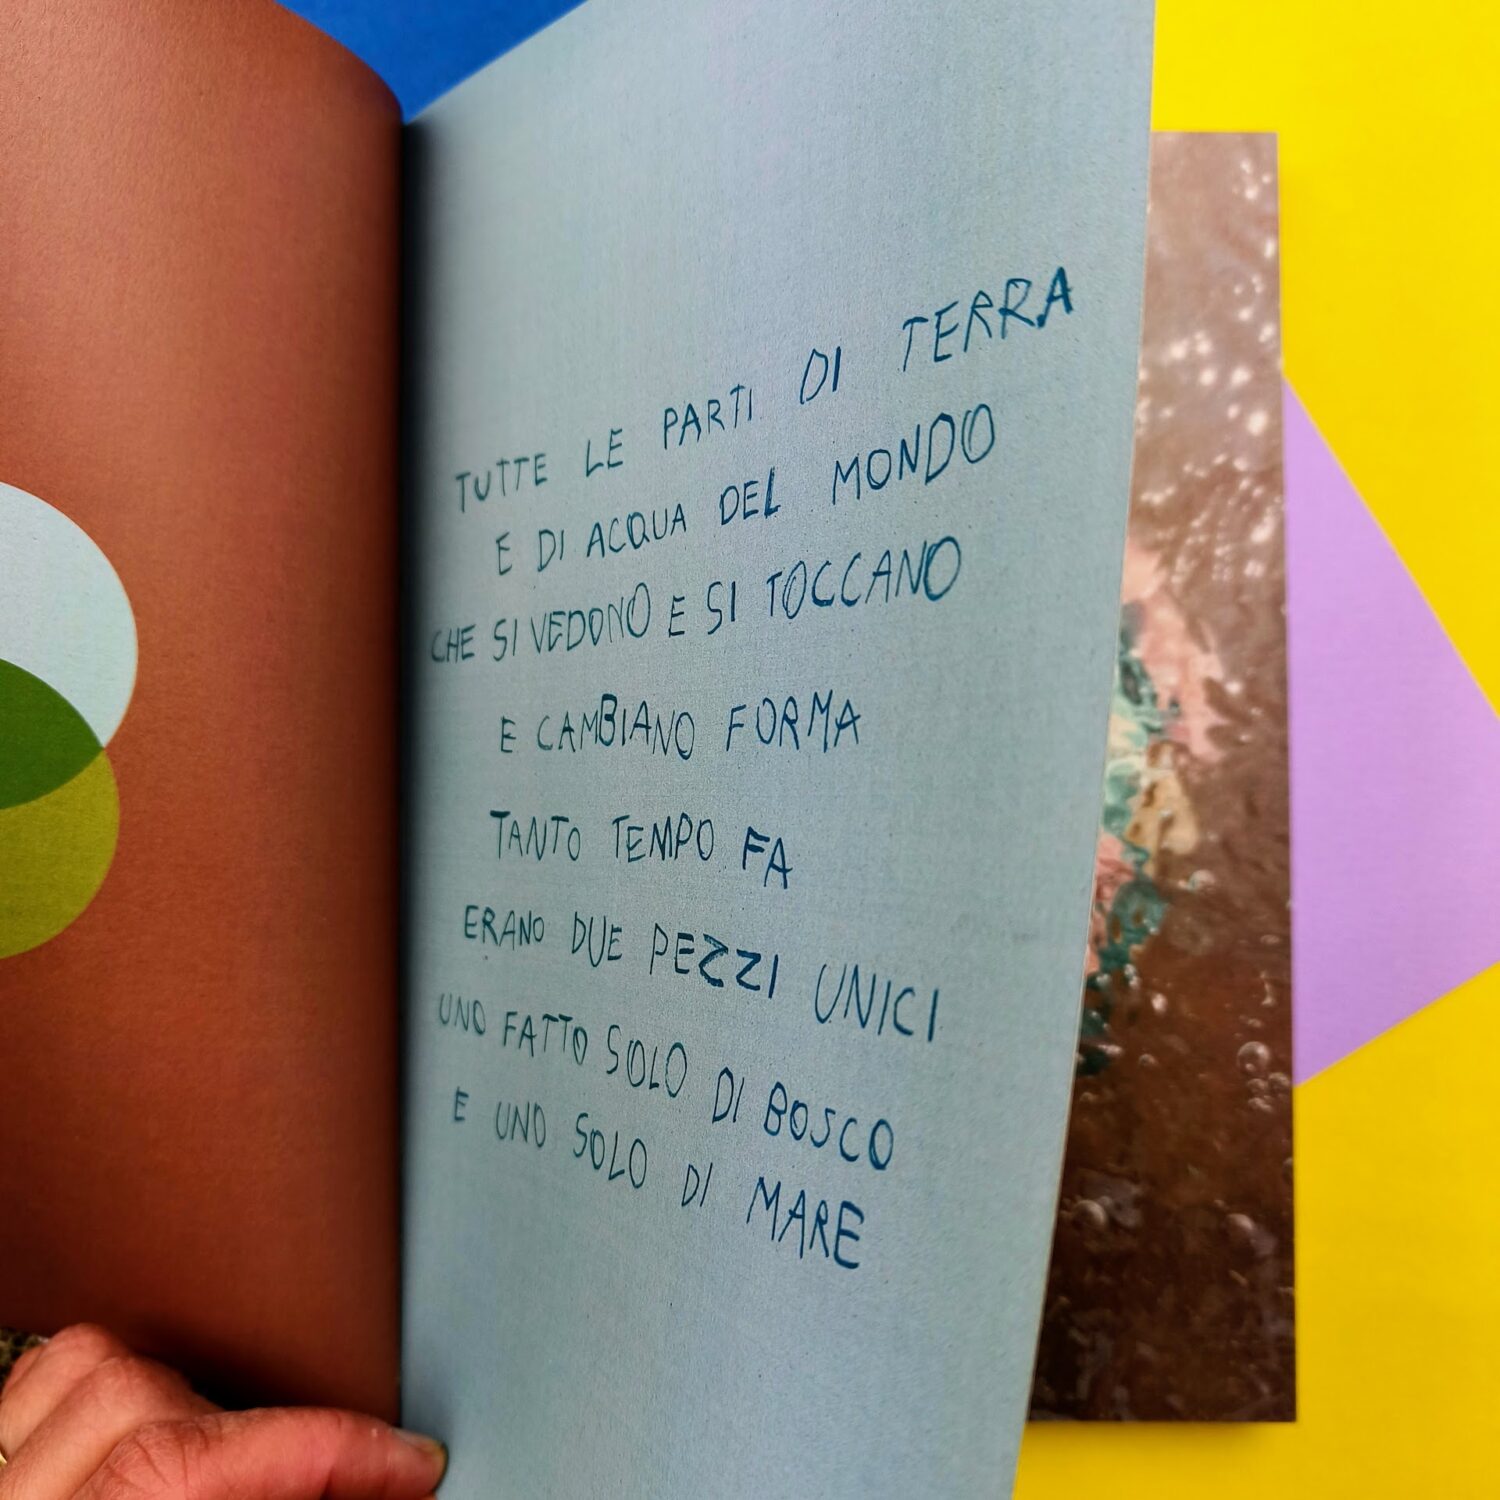 TUTTE LE PARTI DI TERRA
E DI ACQUA DEL MONDO
CHE SI VEDONO E SI TOCCANO
E CAMBIANO FORMA
TANTO TEMPO FA
ERANO DUE PEZZI UNICI
UNO FATTO SOLO DI BOSCO
E UNO SOLO DI MARE